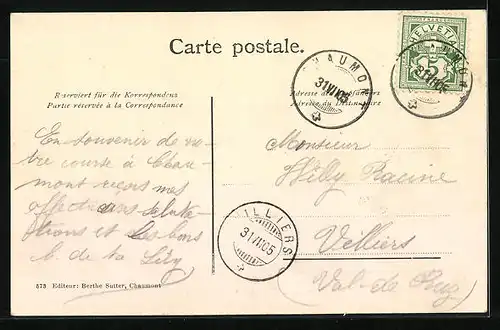 Carte postale.
HELVETIA
5
CHAUMONT
31 VII 05
Reserviert für die Korrespondenz
Partie réservée à la Correspondance
Adresse des Empfängers
Adresse du Destinataire
En souvenir de no-
tre course à Chau-
mont reçois mes
affectueuses saluta-
tions et les bons
b. de ta Lily
Monsieur
Willy Racine
Villiers
(Val-de-Ruz)
VILLIERS
31 VII 05
573 Editeur: Berthe Suiter, Chaumont